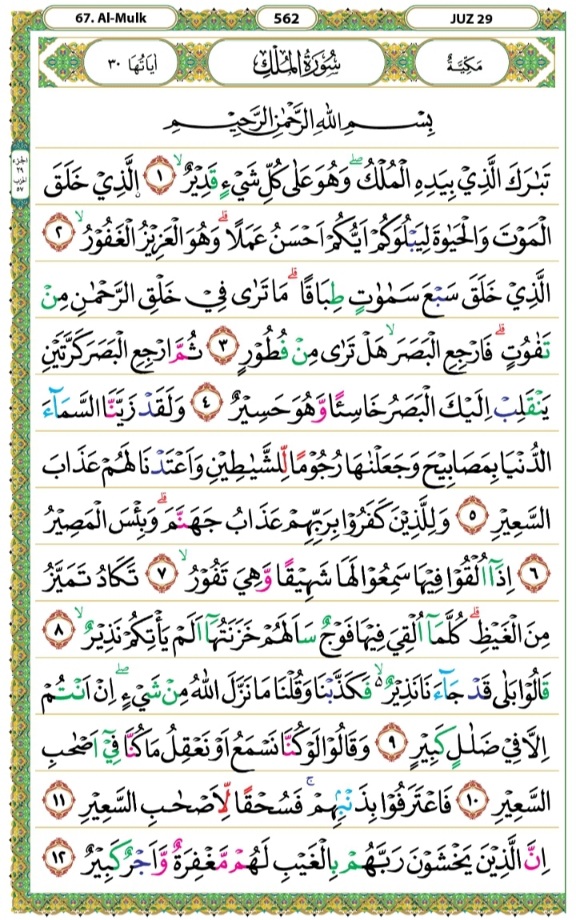 67. Al-Mulk 562 JUZ 29
مَكِّيَّةٌ سُوْرَةُ الْمُلْكِ اٰيَاتُهَا ٣٠
بِسْمِ اللّٰهِ الرَّحْمٰنِ الرَّحِيْمِ
الجزء
٢٩
الحزب
٥٧
تَبٰرَكَ الَّذِيْ بِيَدِهِ الْمُلْكُ ۖ وَهُوَ عَلٰى كُلِّ شَيْءٍ قَدِيْرٌ ۙ ١ الَّذِيْ خَلَقَ
الْمَوْتَ وَالْحَيٰوةَ لِيَبْلُوَكُمْ اَيُّكُمْ اَحْسَنُ عَمَلًا ۗ وَهُوَ الْعَزِيْزُ الْغَفُوْرُ ۙ ٢
الَّذِيْ خَلَقَ سَبْعَ سَمٰوٰتٍ طِبَاقًا ۗ مَا تَرٰى فِيْ خَلْقِ الرَّحْمٰنِ مِنْ
تَفٰوُتٍ ۗ فَارْجِعِ الْبَصَرَ ۙ هَلْ تَرٰى مِنْ فُطُوْرٍ ٣ ثُمَّ ارْجِعِ الْبَصَرَ كَرَّتَيْنِ
يَنْقَلِبْ اِلَيْكَ الْبَصَرُ خَاسِئًا وَّهُوَ حَسِيْرٌ ٤ وَلَقَدْ زَيَّنَّا السَّمَاۤءَ
الدُّنْيَا بِمَصَابِيْحَ وَجَعَلْنٰهَا رُجُوْمًا لِّلشَّيٰطِيْنِ وَاَعْتَدْنَا لَهُمْ عَذَابَ
السَّعِيْرِ ٥ وَلِلَّذِيْنَ كَفَرُوْا بِرَبِّهِمْ عَذَابُ جَهَنَّمَ ۗ وَبِئْسَ الْمَصِيْرُ
٦ اِذَآ اُلْقُوْا فِيْهَا سَمِعُوْا لَهَا شَهِيْقًا وَّهِيَ تَفُوْرُ ۙ ٧ تَكَادُ تَمَيَّزُ
مِنَ الْغَيْظِ ۗ كُلَّمَآ اُلْقِيَ فِيْهَا فَوْجٌ سَاَلَهُمْ خَزَنَتُهَآ اَلَمْ يَأْتِكُمْ نَذِيْرٌ ۙ ٨
قَالُوْا بَلٰى قَدْ جَاۤءَنَا نَذِيْرٌ ۙ فَكَذَّبْنَا وَقُلْنَا مَا نَزَّلَ اللّٰهُ مِنْ شَيْءٍ ۖ اِنْ اَنْتُمْ
اِلَّا فِيْ ضَلٰلٍ كَبِيْرٍ ٩ وَقَالُوْا لَوْ كُنَّا نَسْمَعُ اَوْ نَعْقِلُ مَا كُنَّا فِيْٓ اَصْحٰبِ
السَّعِيْرِ ١٠ فَاعْتَرَفُوْا بِذَنْۢبِهِمْ ۚ فَسُحْقًا لِّاَصْحٰبِ السَّعِيْرِ ١١
اِنَّ الَّذِيْنَ يَخْشَوْنَ رَبَّهُمْ بِالْغَيْبِ لَهُمْ مَّغْفِرَةٌ وَّاَجْرٌ كَبِيْرٌ ١٢